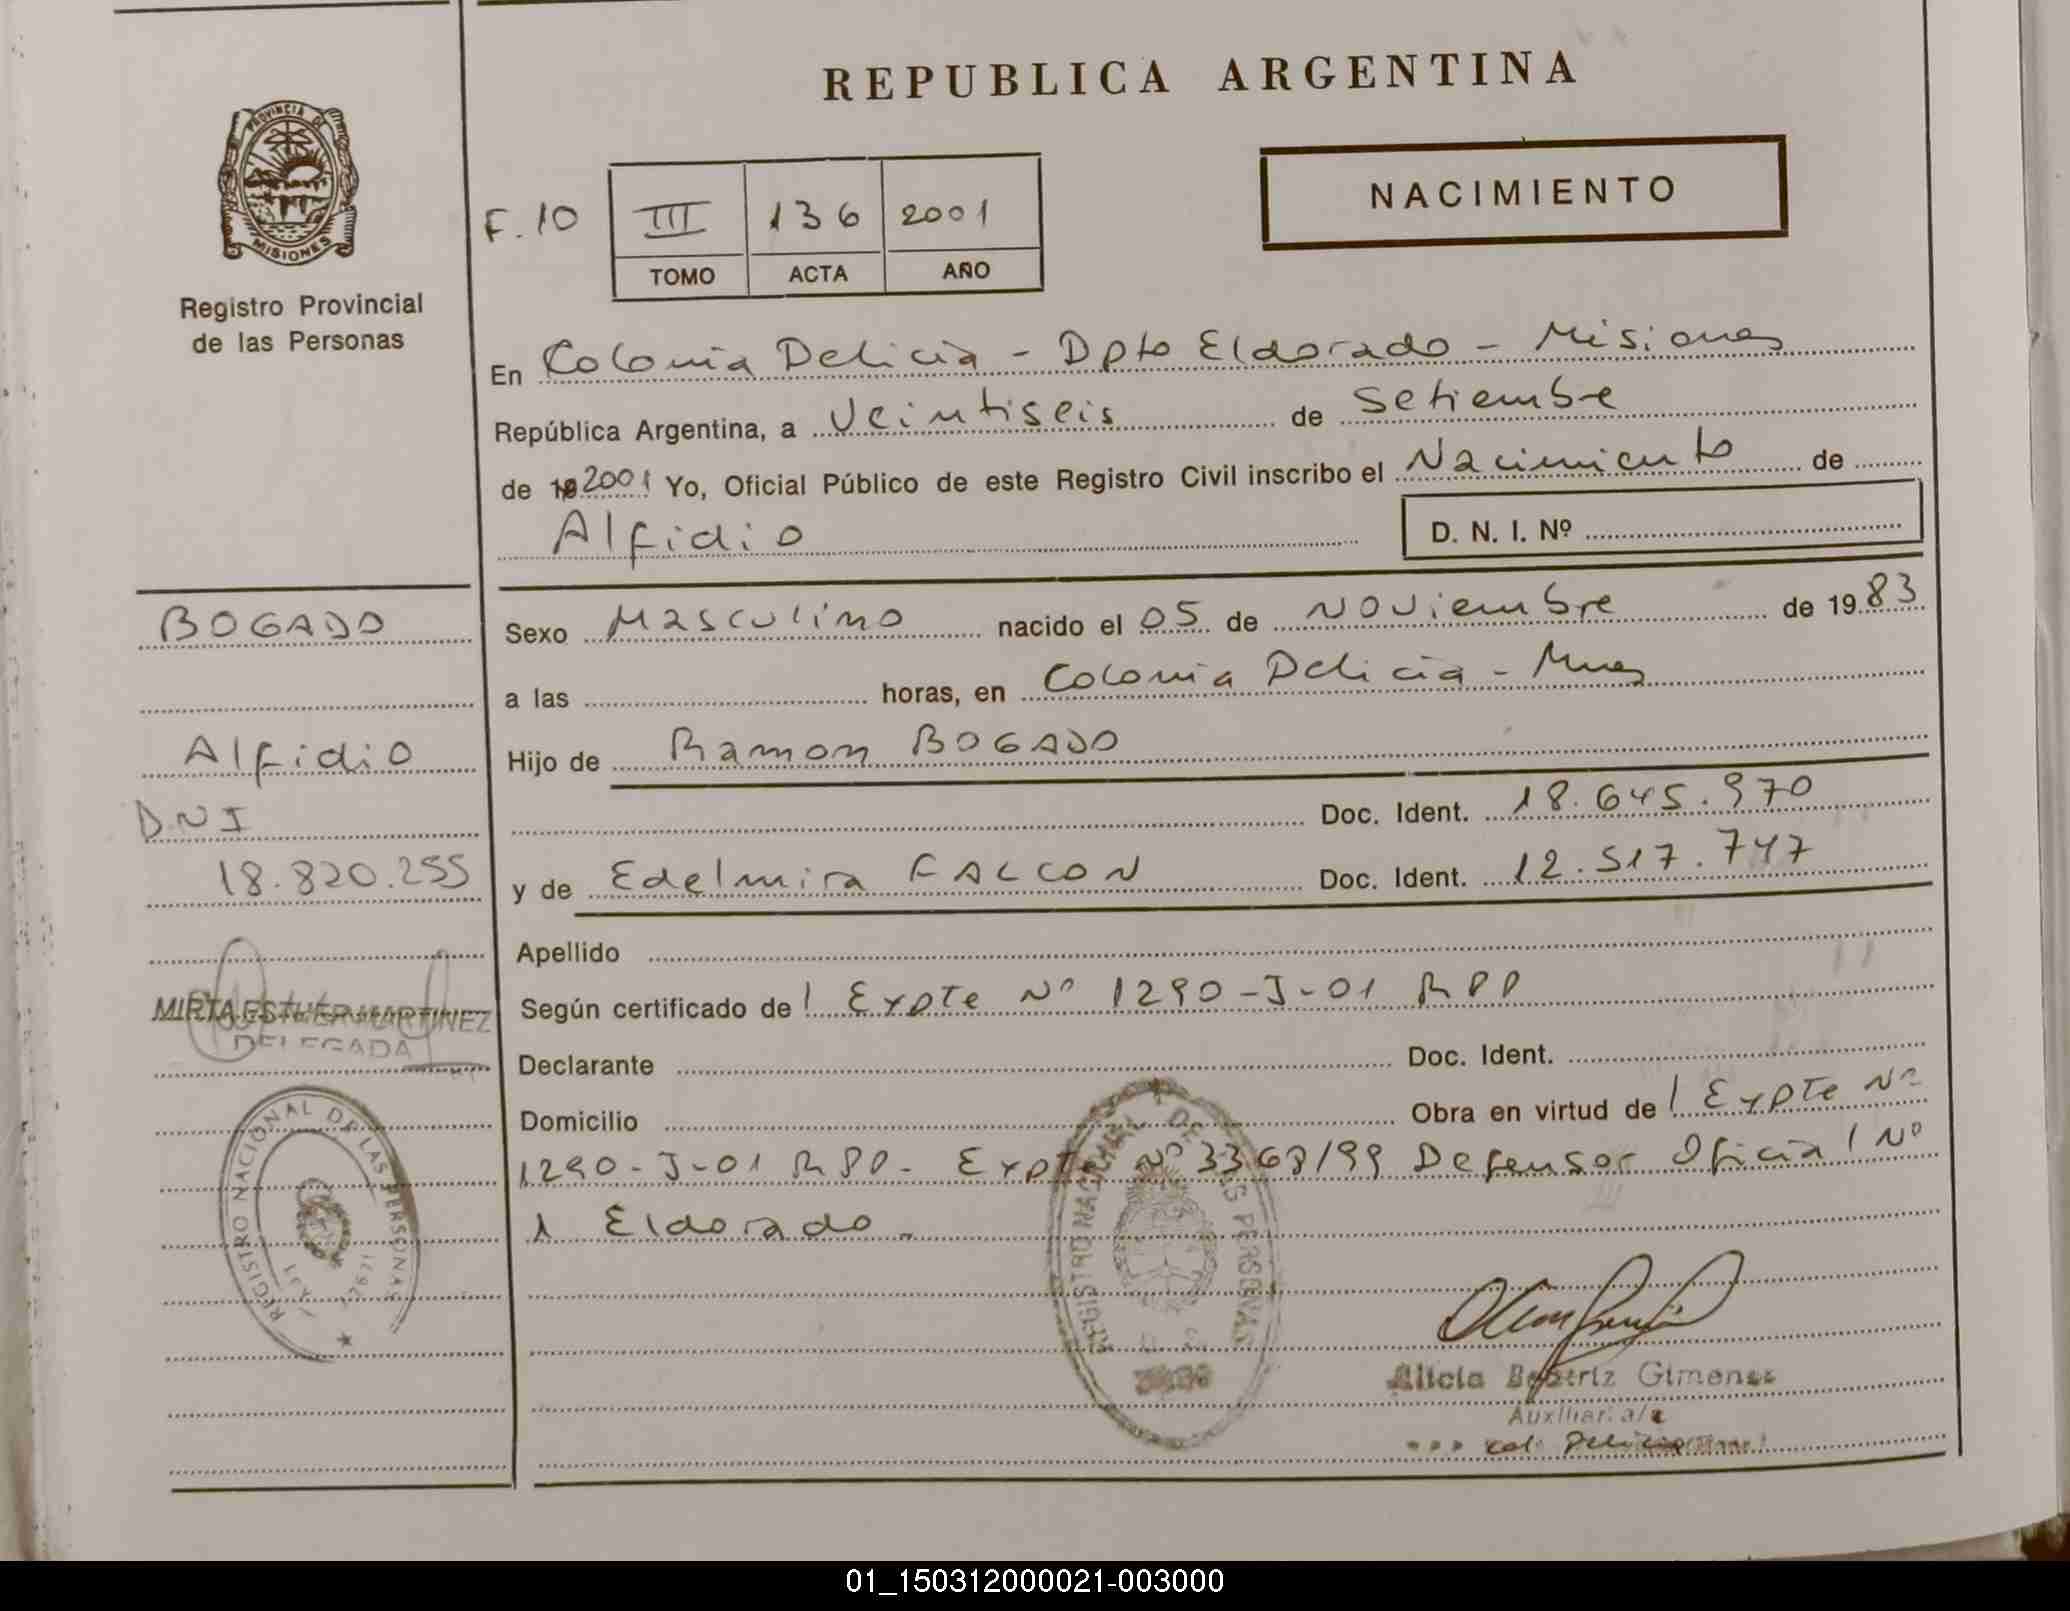 REPUBLICA ARGENTINA
PROVINCIA DE MISIONES
Registro Provincial
de las Personas
NACIMIENTO
F. 10
III 136 2001
TOMO ACTA AÑO
En Colonia Delicia - Dpto Eldorado - Misiones
República Argentina, a Veintiseis de Setiembre
de 19 2001 Yo, Oficial Público de este Registro Civil inscribo el Nacimiento de
Alfidio D. N. I. Nº
BOGADO
Alfidio
DNI
18.820.255
MIRTA ESTHER MARTINEZ
DELEGADA
REGISTRO NACIONAL DE LAS PERSONAS
Sexo Masculino nacido el 05 de Noviembre de 1983
a las horas, en Colonia Delicia - Mnes
Hijo de Ramon BOGADO
Doc. Ident. 18.645.970
y de Edelmira FALCON Doc. Ident. 12.517.747
Apellido
Según certificado de l Expte Nº 1290-J-01 RPP
Declarante Doc. Ident.
Domicilio Obra en virtud de l Expte Nº
1290-J-01 RPP- Expte Nº 3368/99 Defensor Oficial Nº
1 Eldorado -
REGISTRO NACIONAL DE LAS PERSONAS
Alicia Beatriz Gimenez
Auxiliar a/c
Col. Delicia
01_150312000021-003000